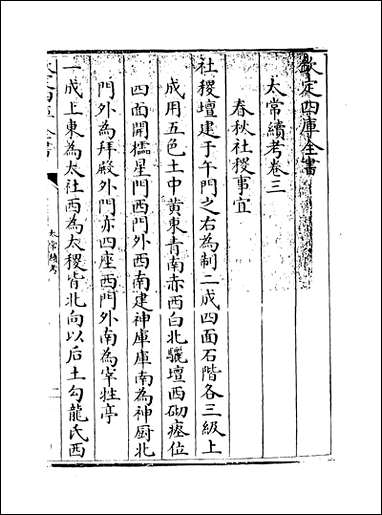 欽定四庫全書
太常續考卷三
春秋社稷事宜
社稷壇建于午門之右為制二成四面石階各三級上
成用五色土中黄東青南赤西白北驪壇西砌瘞位
四面開櫺星門西門外西南建神庫庫南為神厨北
門外為拜殿外門亦四座西門外南為宰牲亭
一成上東為太社西為太稷皆北向以后土勾龍氏西
太常續考